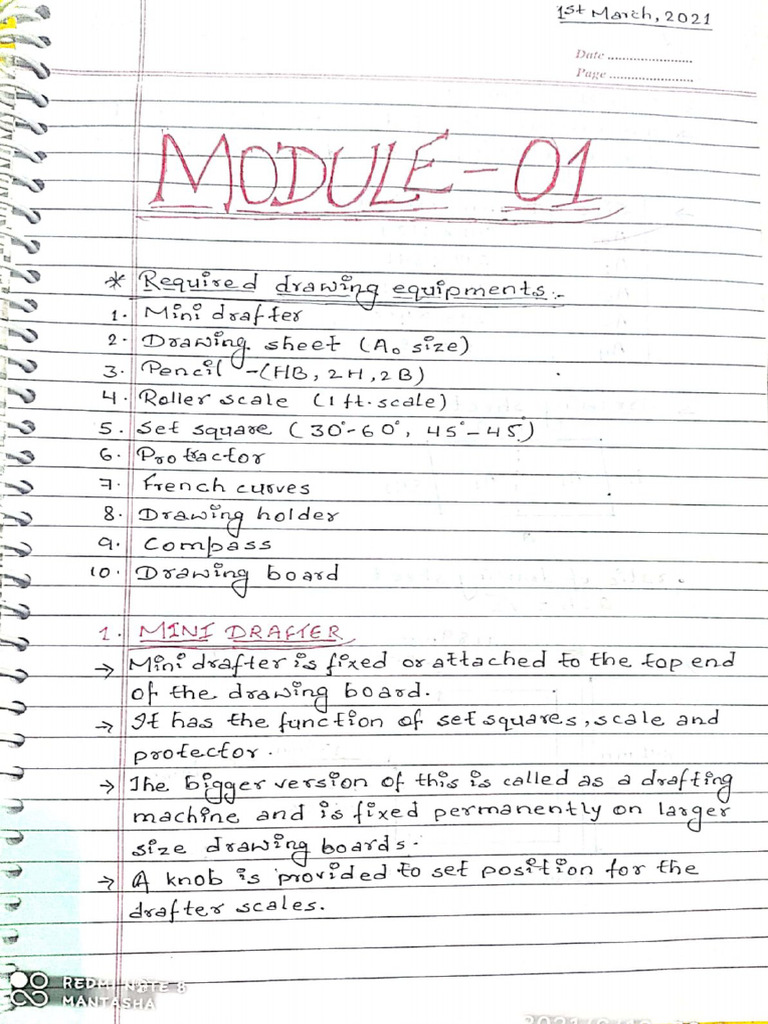 1st March, 2021
Date ........................
Page ........................
MODULE-01
* Required drawing equipments:-
1. Mini drafter
2. Drawing sheet (A₀ size)
3. Pencil -(HB, 2H, 2B)
4. Roller scale (1 ft. scale)
5. Set square (30°-60°, 45°-45)
6. Protractor
7. French curves
8. Drawing holder
9. Compass
10. Drawing board
1. MINI DRAFTER
→ Mini drafter is fixed or attached to the top end
of the drawing board.
→ It has the function of set squares, scale and
protector.
→ The bigger version of this is called as a drafting
machine and is fixed permanently on larger
size drawing boards.
→ A knob is provided to set position for the
drafter scales.
REDMI NOTE 8
MANTASHA